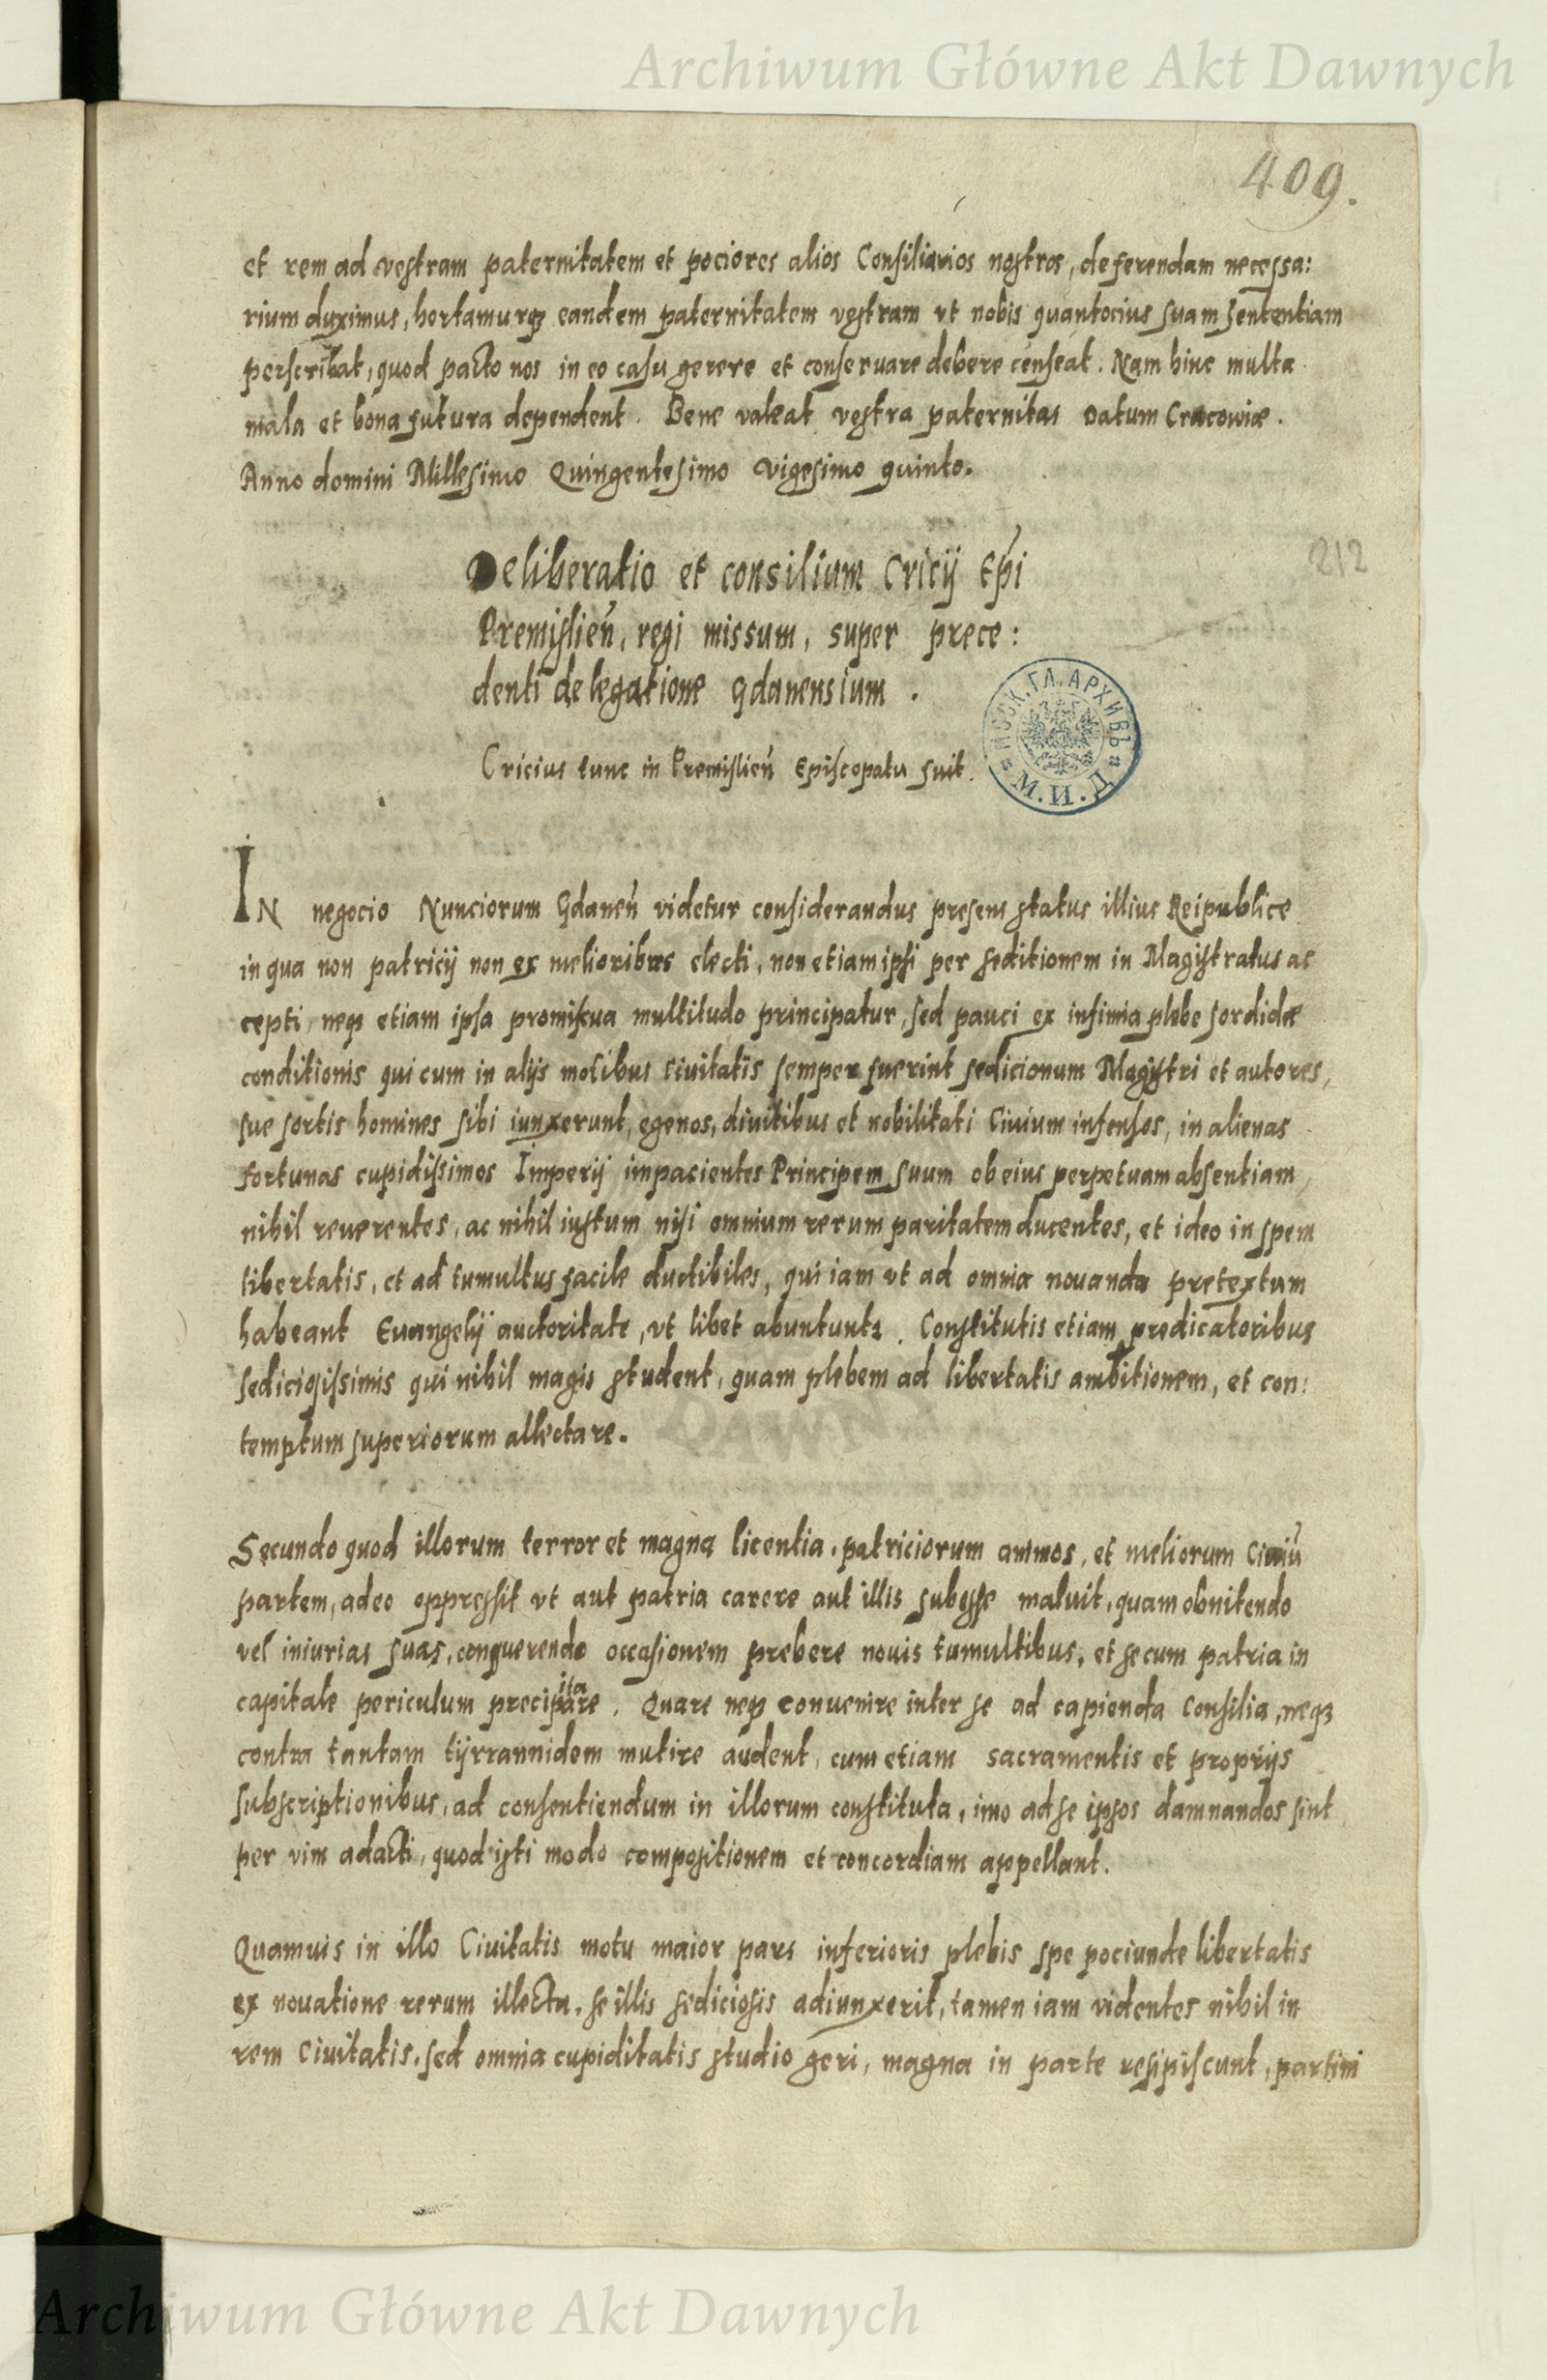 Archiwum Główne Akt Dawnych
409.
et rem ad vestram paternitatem et pociores alios Consiliarios nostros, deferendam necessa:
rium duximus, hortamurq3 eandem paternitatem vestram vt nobis quantocius suam sententiam
perscribat, quod pacto nos in eo casu gerere et conseruare debere censeat. Nam hinc multa
mala et bona futura dependent. Bene valeat vestra paternitas Datum Cracowiæ.
Anno domini Millesimo Quingentesimo Vigesimo quinto.
212
Deliberatio et consilium Cricij Ep̃i
Premislieñ, regi missum, super prece:
denti delegatione Gdanensium.
Cricius tunc in Premislieñ Episcopatu fuit.
МОСК. ГЛ. АРХИВЪ
М. И. Д.
IN negocio Nunciorum Gdaneñ videtur considerandus presens status illius Reipublice
in qua non patricij non ex melioribus electi, non etiam ipsi per seditionem in Magistratus ac
cepti, neq3 etiam ipsa promiscua multitudo principatur, sed pauci ex infimia plebe sordidæ
conditionis qui cum in alijs motibus ciuitatis semper fuerint sedicionum Magistri et autores,
sue sortis homines sibi iunxerunt, egenos, diuitibus et nobilitati Ciuium infensos, in alienas
fortunas cupidissimos Imperij impacientes Principem suum ob eius perpetuam absentiam
nihil reuerentes, ac nihil iustum nisi omnium rerum paritatem ducentes, et ideo in spem
libertatis, et ad tumultus facile ductibiles, qui iam vt ad omnia nouanda pretextum
habeant Euangelij auctoritate, vt libet abuntuntz. Constitutis etiam predicatoribus
sediciosissimis qui nihil magis student, quam plebem ad libertatis ambitionem, et con:
temptum superiorum allectare.
Secundo quod illorum terror et magna licentia, patriciorum animos, et meliorum Ciuiũ
partem, adeo oppressit vt aut patria carere aut illis subesse maluit, quam obnitendo
vel iniurias suas, conquerendo occasionem prebere nouis tumultibus, et secum patria in
capitale periculum precipitare. Quare neq3 conuenire inter se ad capienda Consilia, neq3
contra tantam tijrrannidem mutire audent, cum etiam sacramentis et proprijs
subscriptionibus, ad consentiendum in illorum constituta, imo ad se ipsos damnandos sint
per vim adacti, quod isti modo compositionem et concordiam appellant.
Quamuis in illo Ciuitatis motu maior pars inferioris plebis spe pociunde libertatis
ex nouatione rerum illecta, se illis sediciosis adiunxerit, tamen iam videntes nihil in
rem Ciuitatis, sed omnia cupiditatis studio geri, magna in parte resipiscunt, partim
Archiwum Główne Akt Dawnych